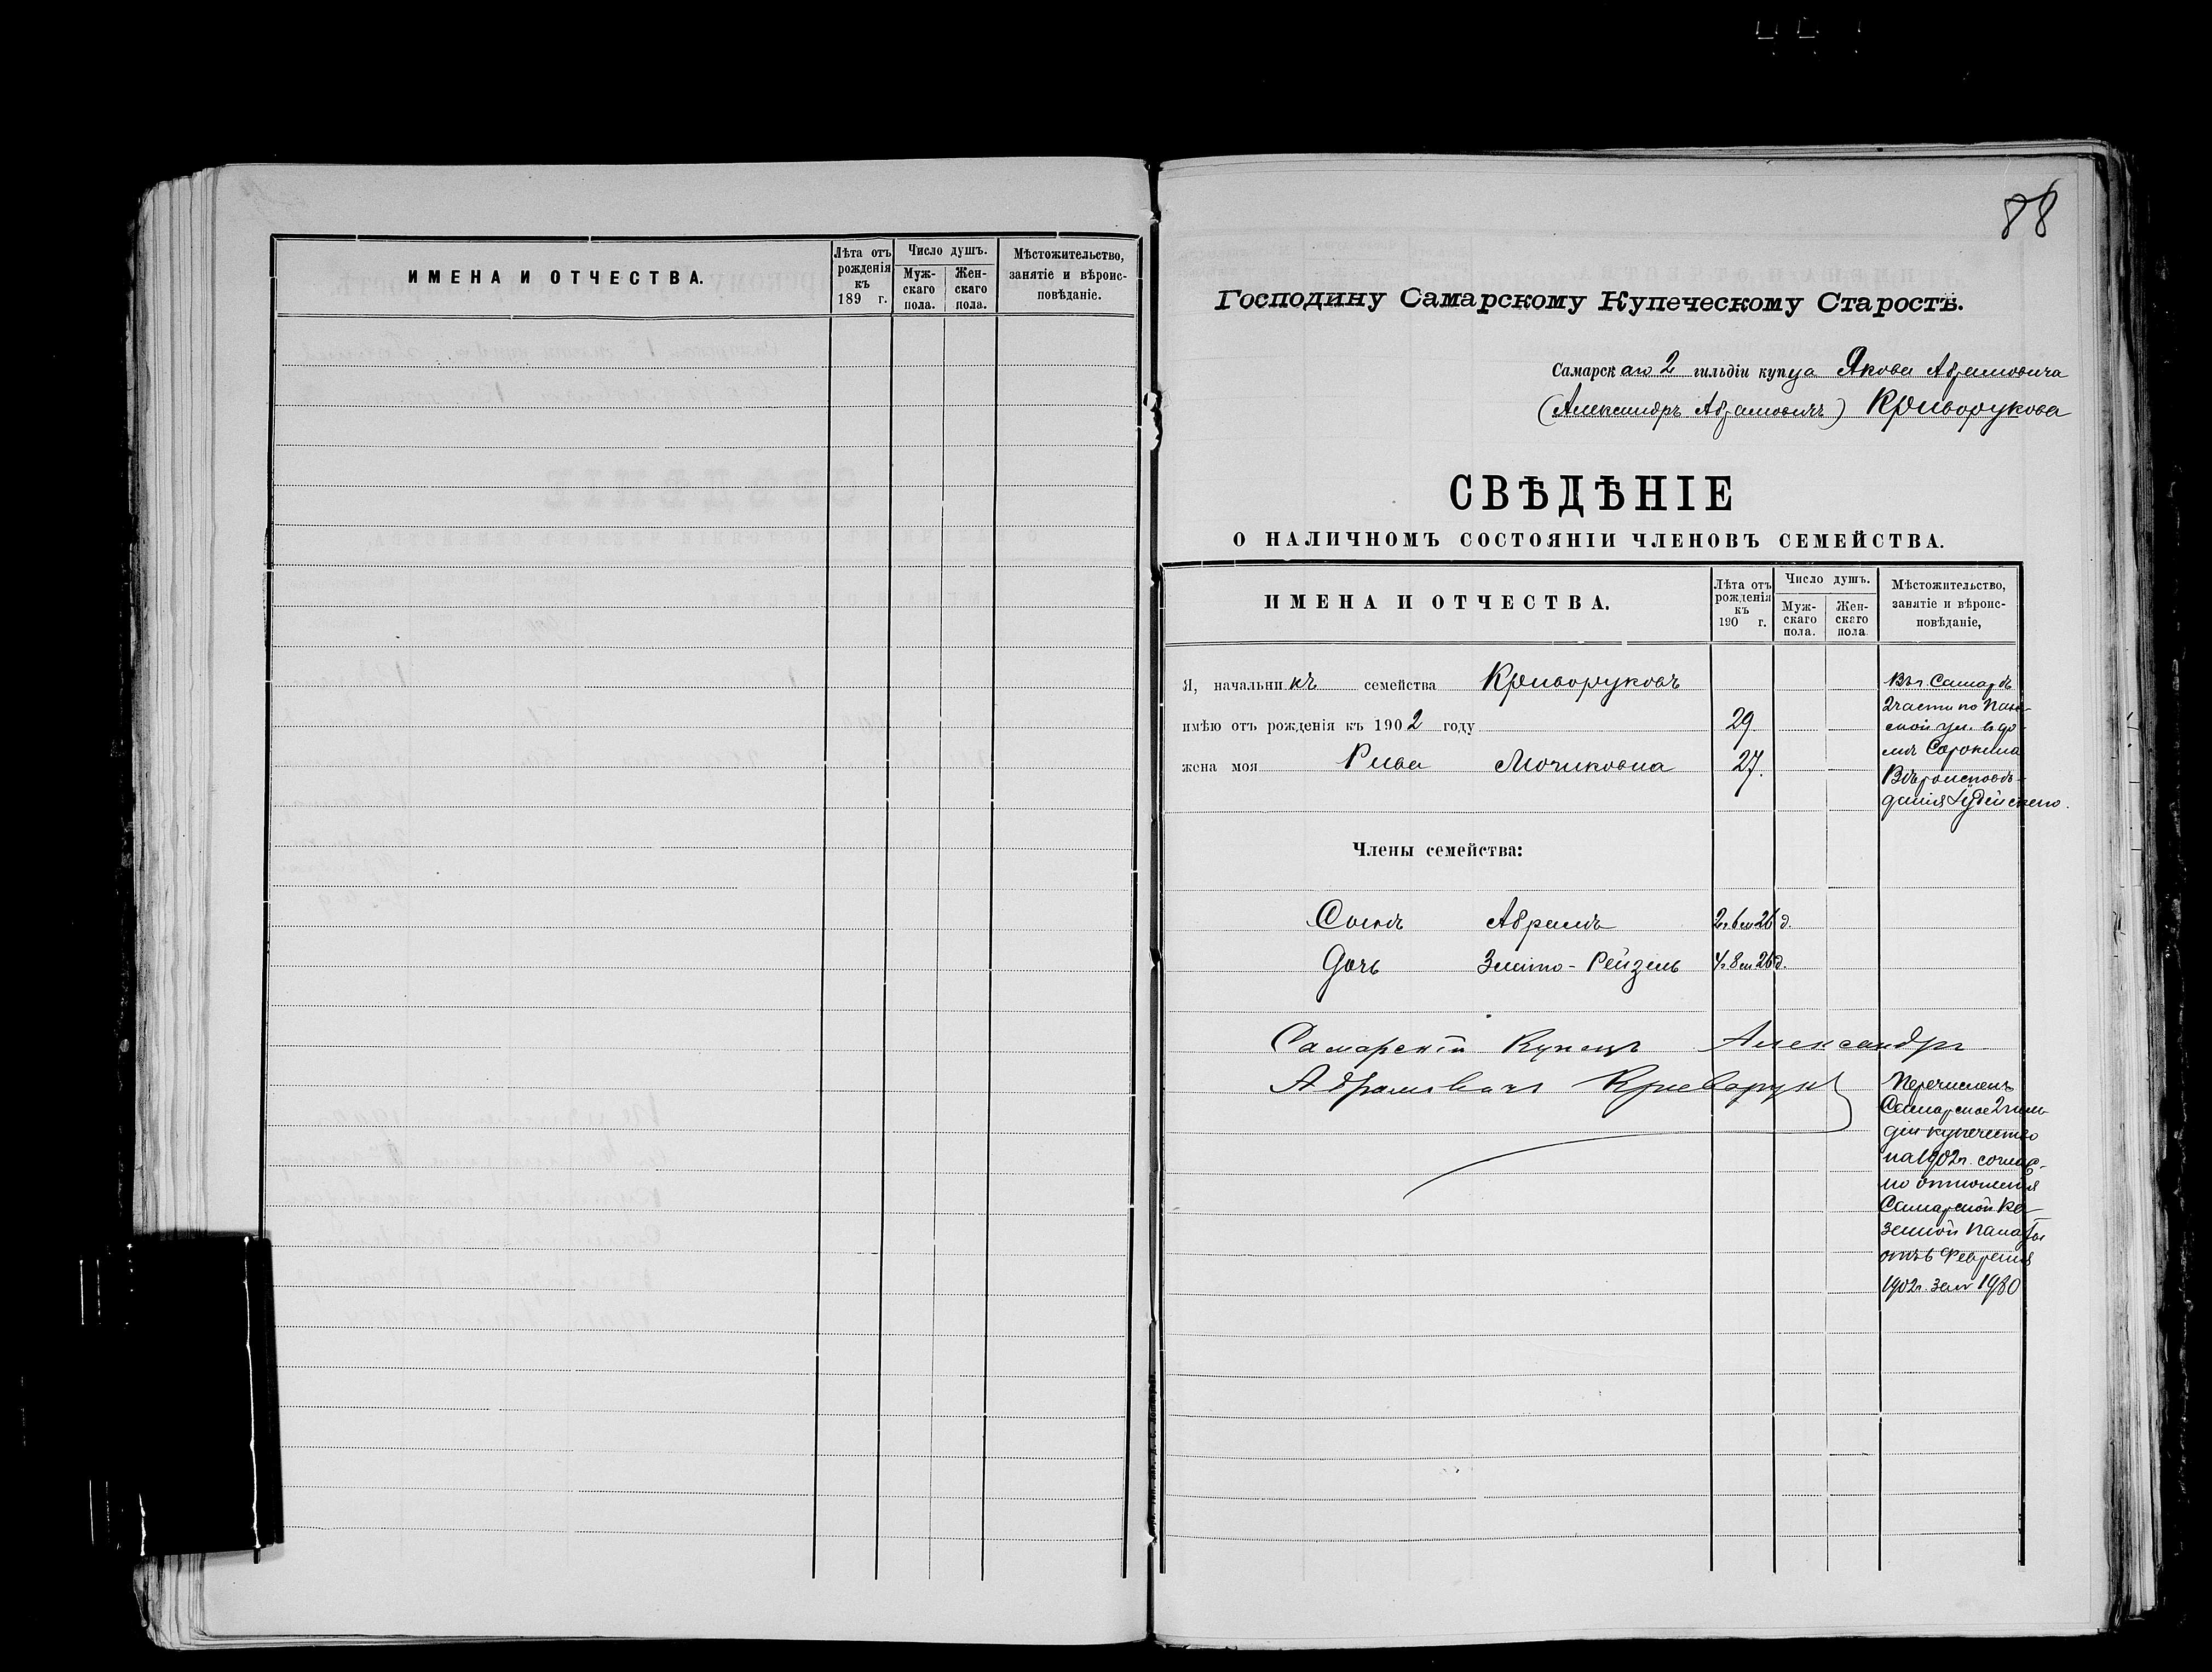 ИМЕНА И ОТЧЕСТВА.
Лѣта отъ рожденія къ 189 г.
Число душъ.
Мужскаго пола.
Женскаго пола.
Мѣстожительство, занятіе и вѣроисповѣданіе.
88
Господину Самарскому Купеческому Старостѣ.
Самарскаго 2 гильдіи купца Якова Абрамовича
(Александръ Абрамовичъ) Криворукова
СВѢДѢНІЕ
О НАЛИЧНОМЪ СОСТОЯНІИ ЧЛЕНОВЪ СЕМЕЙСТВА.
ИМЕНА И ОТЧЕСТВА.
Лѣта отъ
рожденія
къ
190 г.
Число душъ.
Муж-
скаго
пола.
Жен-
скаго
пола
Мѣстожительство,
занятіе и вѣроис-
повѣданіе,
Я, начальникъ семейства Криворуковъ
имѣю отъ рожденія къ 1902 году 29
жена моя Рива 27.
Въ г. Самарѣ
2 части по Пан-
ской ул. в до-
мѣ Сорокина
Вѣроисповѣ-
данія Іудейскаго.
Члены семейства:
Сынъ Абрамъ 2 г. 6 м 26 д.
Дочь Рейзель 4 г. 8 м 26 д.
Самарскій Купецъ Александръ
Абрамовичъ Криворуков
Перечисленъ
Самарское 2 гиль-
діи купечество
на 1902 г. соглас-
но отношенія
Самарской Ка-
зенной Палаты
отъ 6 Февраля
1902 г. за № 1980